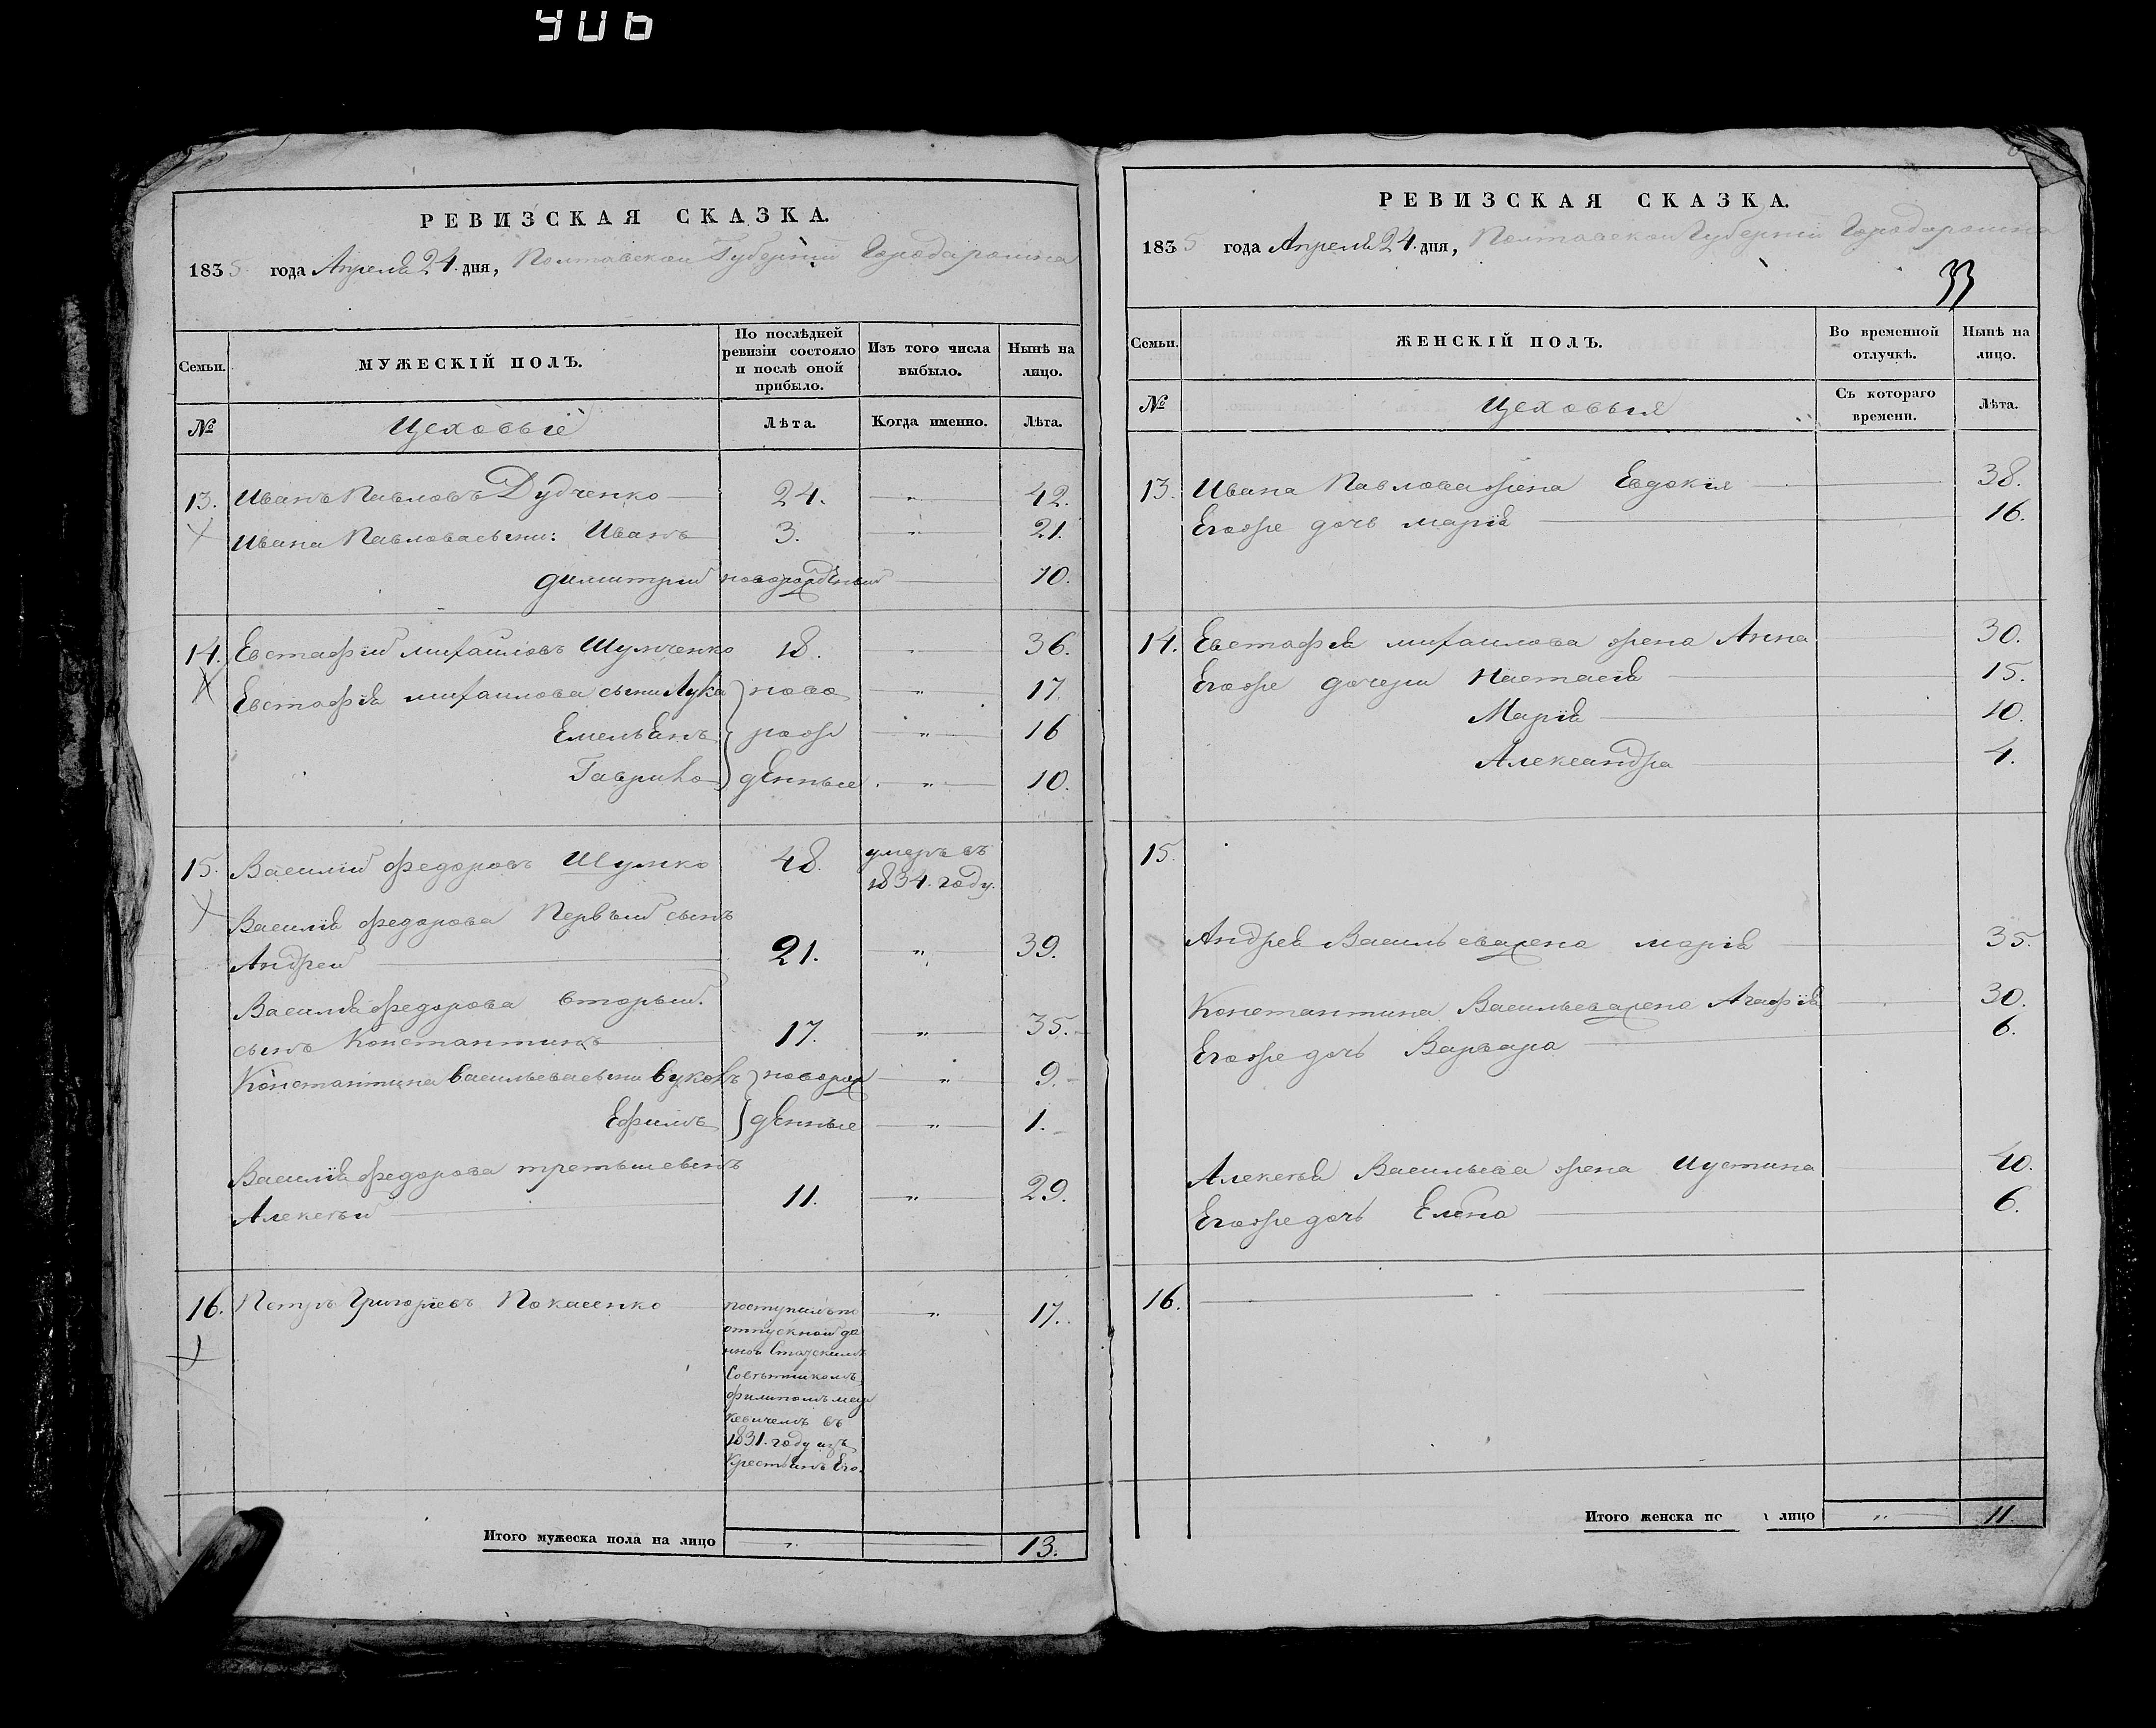 906
РЕВИЗСКАЯ СКАЗКА.
1835 года Апреля 24. дня, Полтавской Губерніи Города ромна
Семьи.
МУЖЕСКІЙ ПОЛЪ.
По послѣдней ревизіи состояло и послѣ оной прибыло.
Изъ того числа выбыло.
Нынѣ на лицо.
№
Цеховыѣ
Лѣта.
Когда именно.
Лѣта.
13. Иванъ Павловъ Дудченко 24. " 42.
Ивана Павлова сыни: Иванъ 3. " 21.
димитрий новорожденый 10.
14. Евстафій михайловъ Шумченко 18. " 36.
Евстафія михаилова сыни Лука ново " 17.
Емельянъ рож " 16
Гаврило денные " 10.
15. Василій федоровъ Шумко 48. умеръ въ
1834. году.
Василія федорова Первый сынъ
Андрей 21. " 39.
Василія федорова вторый
сынъ Константинъ 17. " 35.
Константина васильева сыни вуколъ новорож " 9.
Ефимъ денные " 1.
Василія федорова третьи сынъ
Алексѣй 11. " 29.
16. Петръ Григоріевъ Покасенко поступилъ по " 17.
отпускной да
нной Статскимъ
Совѣтникомъ
филипомъ мар
кевичемъ въ
1831. году изъ
Крестьянъ Его.
Итого мужеска пола на лицо " 13.
РЕВИЗСКАЯ СКАЗКА.
1835 года Апреля 24. дня, Полтавской Губерніи Города ромна
33
Семьи.
ЖЕНСКІЙ ПОЛЪ.
Во временной отлучкѣ.
Нынѣ на лицо.
№
Цеховыя
Съ котораго времени.
Лѣта.
13. Ивана Павлова жена Евдокія 38.
Егоже дочь марія 16.
14. Евстафія михаилова жена Анна 30.
Егоже дочери Настасія 15.
Марія 10.
Александра 4.
15.
Андрея Васильева жена марія 35.
Константина Васильева жена Агафія 30.
Егоже дочь Варвара 6.
Алексѣя Васильева жена Иустина 40.
Егоже дочь Елена 6.
16.
Итого женска по лицо " 11.